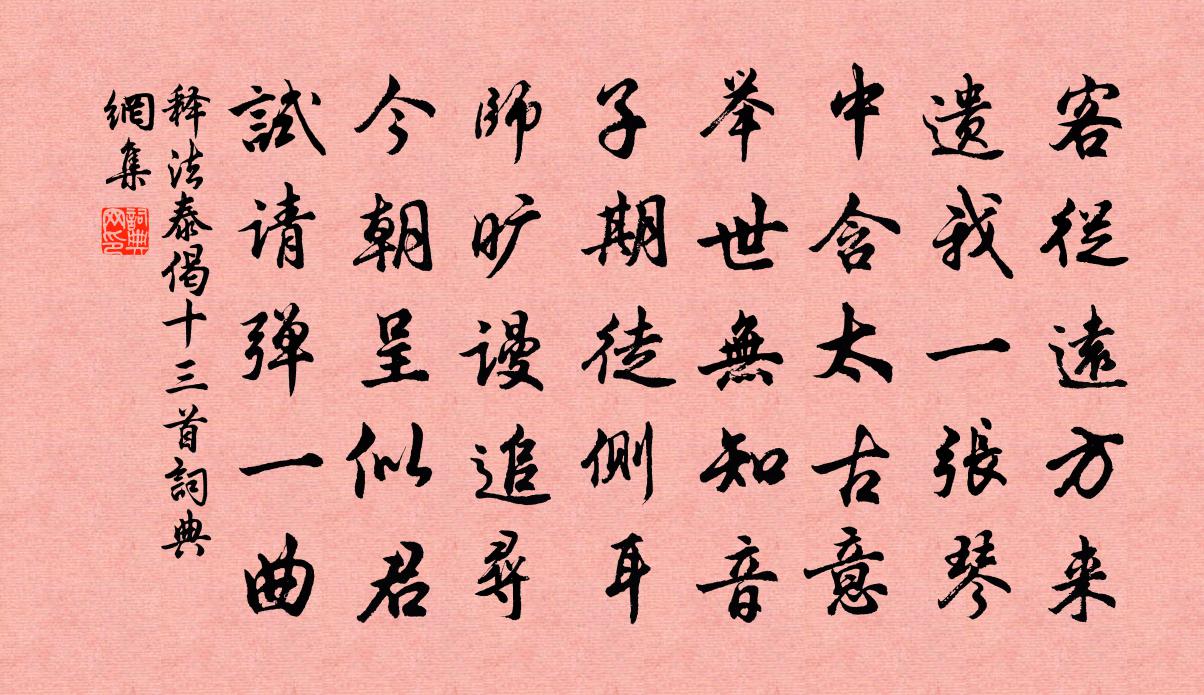 客從遠方来
遗我一張琴
中含太古意
举世無知音
子期徒側耳
師旷谩追尋
今朝呈似君
試请弹一曲
释法泰偈十三首詞典
網集
詞典
网印